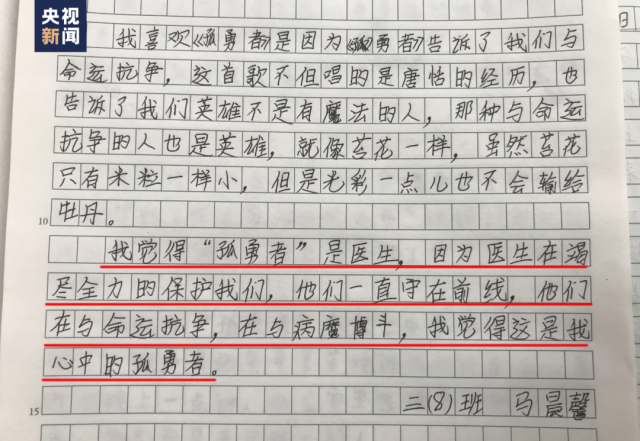 央视
新闻
日
我喜欢《孤勇者》是因为《孤勇者》告诉了我们与
命运抗争，这首歌不但唱的是唐恬的经历，也
告诉了我们英雄不是有魔法的人，那种与命运
抗争的人也是英雄，就像苔花一样，虽然苔花
只有米粒一样小，但是光彩一点儿也不会输给
10 牡丹。
我觉得“孤勇者”是医生，因为医生在竭
尽全力的保护我们，他们一直守在前线，他们
在与命运抗争，在与病魔搏斗，我觉得这是我
心中的孤勇者。
15 三(8)班 马晨馨